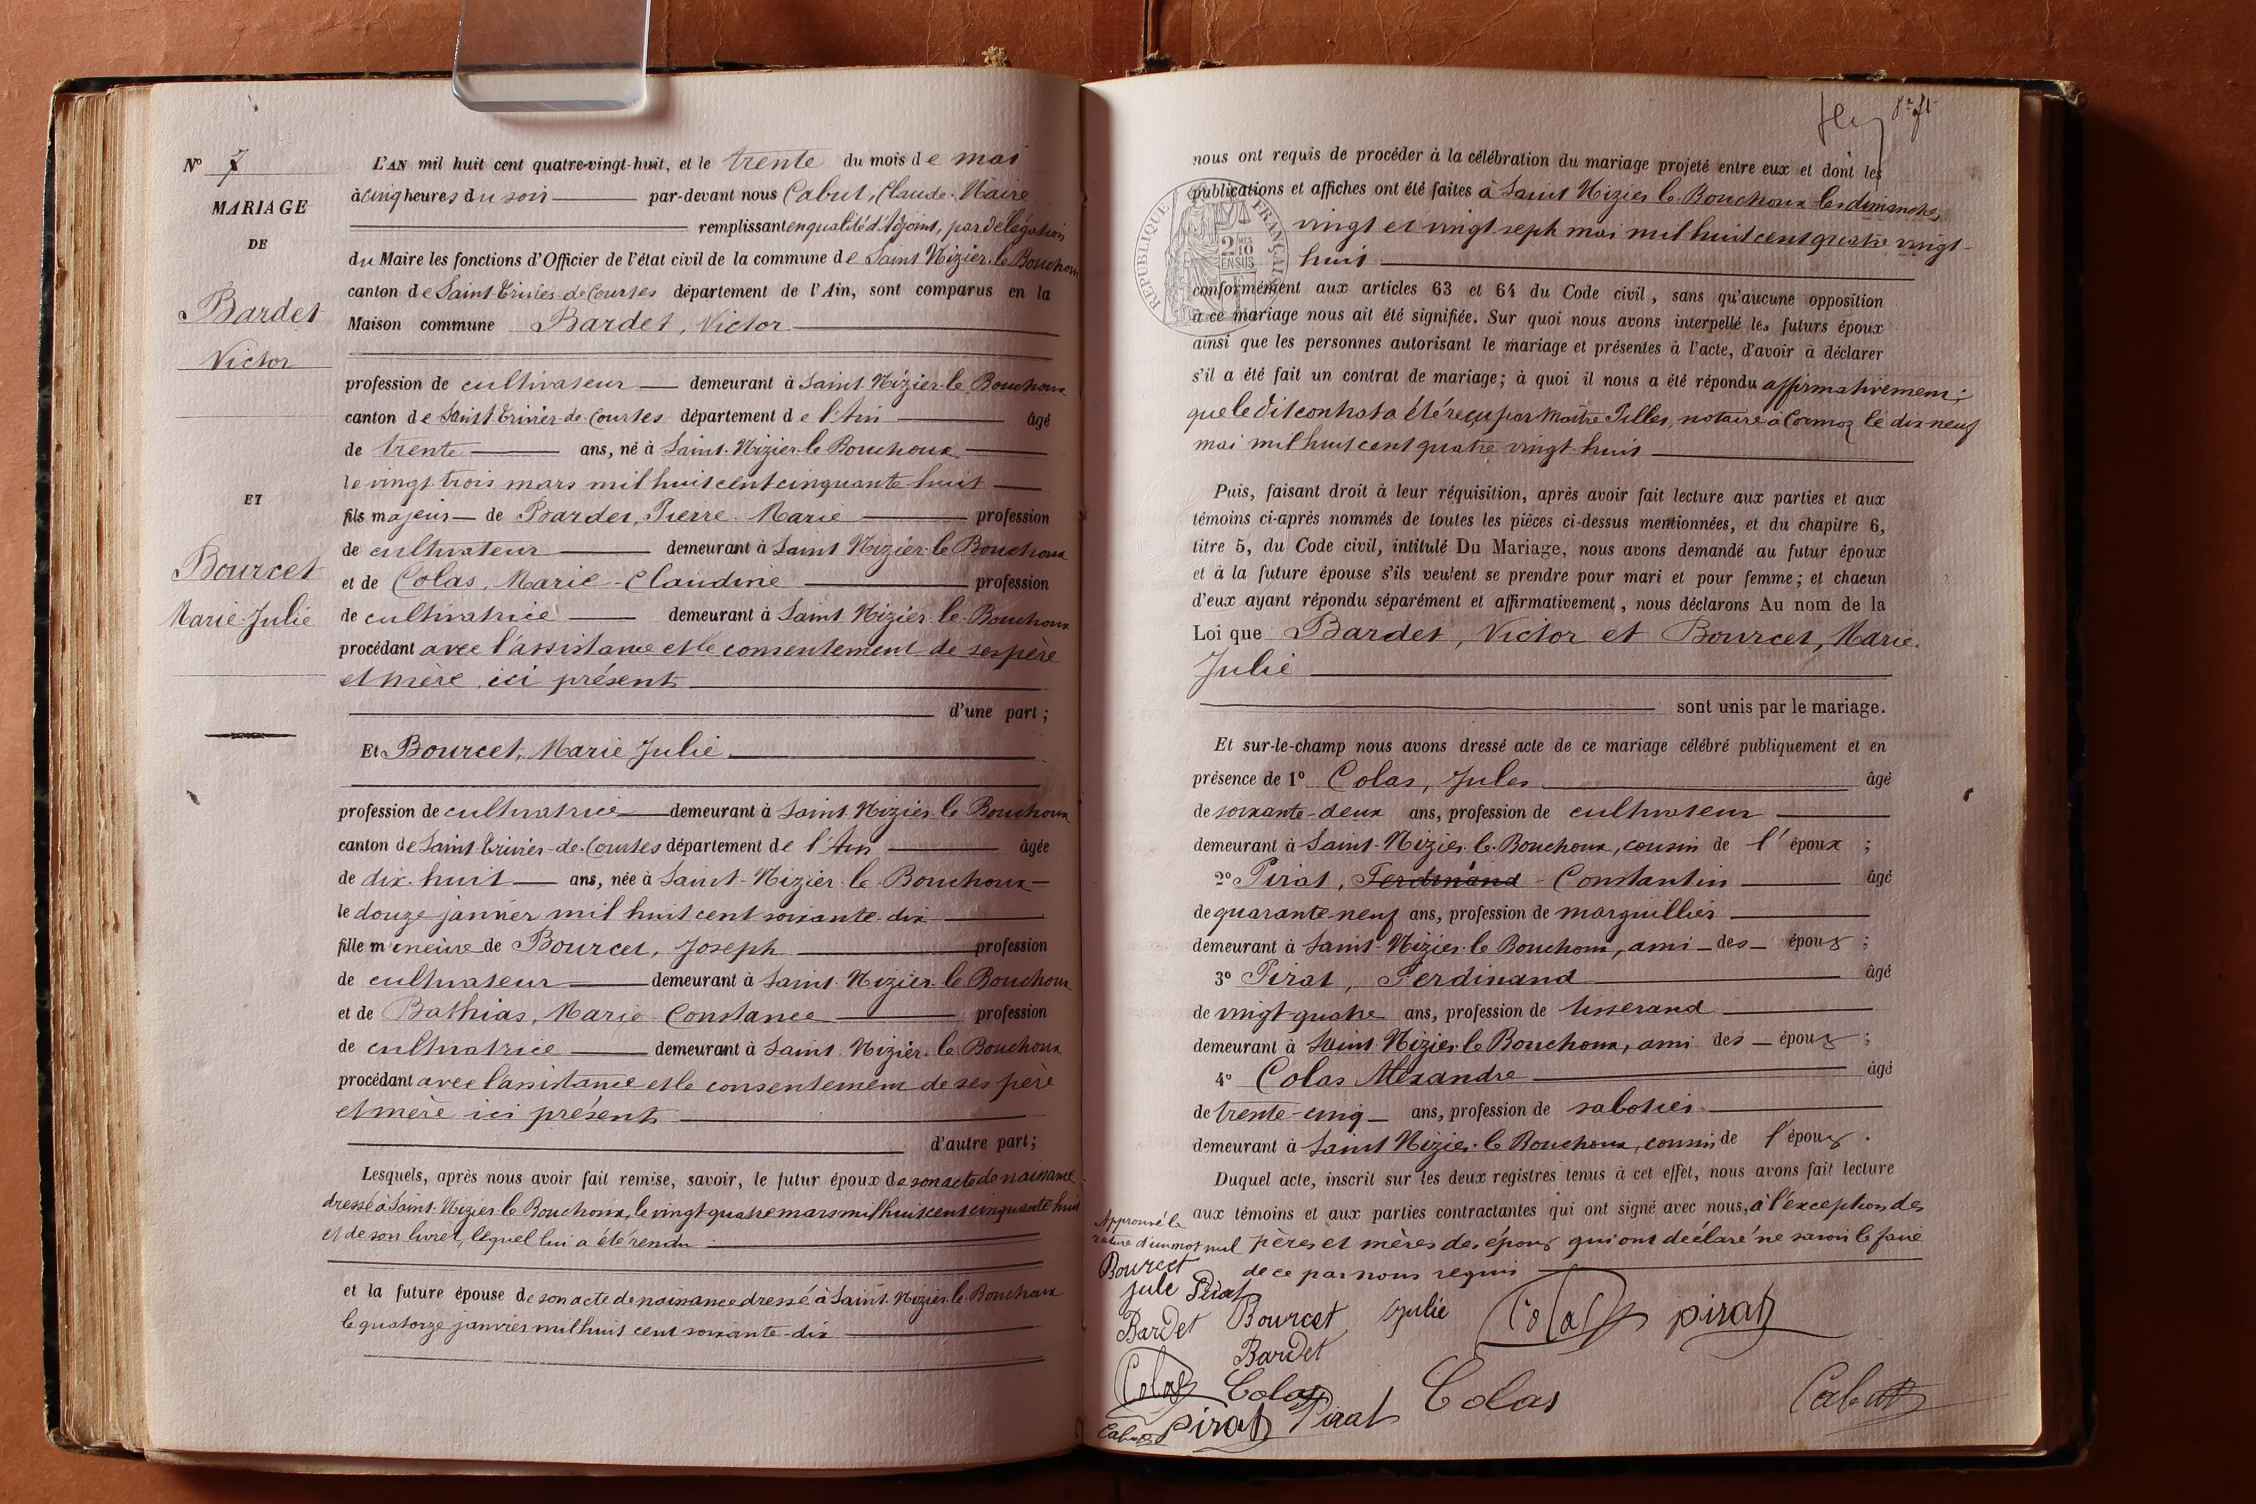 N° 7
MARIAGE
DE
Bardet
Victor
ET
Bourcet
Marie-Julie
L'AN mil huit cent quatre-vingt-huit, et le trente du mois de mai
à cinq heures du soir par-devant nous Cabut, Claude. Maire
remplissant en qualité d'Adjoint, par délégation
du Maire les fonctions d'Officier de l'état civil de la commune de Saint Nizier-le-Bouchoux
canton de Saint Trivier-de-Courtes département de l'Ain, sont comparus en la
Maison commune Bardet, Victor
profession de cultivateur demeurant à Saint Nizier-le-Bouchoux
canton de Saint Trivier-de-Courtes département de l'Ain âgé
de trente ans, né à Saint-Nizier-le Bouchoux
le vingt trois mars mil huit cent cinquante huit
fils majeur de Bardet, Pierre-Marie profession
de cultivateur demeurant à Saint Nizier-le Bouchoux
et de Colas, Marie-Claudine profession
de cultivatrice demeurant à Saint Nizier-le-Bouchoux
procédant avec l'assistance et le consentement de ses père
et mère ici présents
d'une part;
Et Bourcet, Marie Julie
profession de cultivatrice demeurant à Saint Nizier-le Bouchoux
canton de Saint-Trivier-de-Courtes département de l'Ain âgée
de dix-huit ans, née à Saint-Nizier-le-Bouchoux
le douze janvier mil huit cent soixante-dix
fille mineure de Bourcet, Joseph profession
de cultivateur demeurant à Saint Nizier-le Bouchoux
et de Bathias, Marie-Constance profession
de cultivatrice demeurant à Saint Nizier-le Bouchoux
procédant avec l'assistance et le consentement de ses père
et mère ici présents
d'autre part;
Lesquels, après nous avoir fait remise, savoir, le futur époux de son acte de naissance
dressé à Saint-Nizier-le Bouchoux, le vingt quatre mars mil huit cent cinquante huit
et de son livret, lequel lui a été rendu
et la future épouse de son acte de naissance dressé à Saint-Nizier-le-Bouchoux
le quatorze janvier mil huit cent soixante-dix
nous ont requis de procéder à la célébration du mariage projeté entre eux et dont les
publications et affiches ont été faites à Saint Nizier le Bouchoux les dimanches
vingt et vingt sept mai mil huit cent quatre vingt-
huit
RÉPUBLIQUE FRANÇAISE
2 DES 10 EN SUS
conformément aux articles 63 et 64 du Code civil, sans qu'aucune opposition
à ce mariage nous ait été signifiée. Sur quoi nous avons interpellé les futurs époux
ainsi que les personnes autorisant le mariage et présentes à l'acte, d'avoir à déclarer
s'il a été fait un contrat de mariage; à quoi il nous a été répondu affirmativement;
que le dit contrat a été reçu par Maître Pilles, notaire à Cormoz le dix neuf
mai mil huit cent quatre vingt-huit
Puis, faisant droit à leur réquisition, après avoir fait lecture aux parties et aux
témoins ci-après nommés de toutes les pièces ci-dessus mentionnées, et du chapitre 6,
titre 5, du Code civil, intitulé Du Mariage, nous avons demandé au futur époux
et à la future épouse s'ils veulent se prendre pour mari et pour femme; et chacun
d'eux ayant répondu séparément et affirmativement, nous déclarons Au nom de la
Loi que Bardet, Victor et Bourcet, Marie-
Julie
sont unis par le mariage.
Et sur-le-champ nous avons dressé acte de ce mariage célébré publiquement et en
présence de 1° Colas, Jules âgé
de soixante-deux ans, profession de cultivateur
demeurant à Saint-Nizier-le-Bouchoux, cousin de l'époux;
2° Pirat, Ferdinand Constantin âgé
de quarante-neuf ans, profession de marguillier
demeurant à Saint-Nizier-le Bouchoux, ami des époux;
3° Pirat, Ferdinand âgé
de vingt-quatre ans, profession de tisserand
demeurant à Saint-Nizier-le Bouchoux, ami des époux;
4° Colas Alexandre âgé
de trente-cinq ans, profession de sabotier
demeurant à Saint Nizier-le Bouchoux, cousin de l'époux.
Duquel acte, inscrit sur les deux registres tenus à cet effet, nous avons fait lecture
aux témoins et aux parties contractantes qui ont signé avec nous, à l'exception des
pères et mères des époux qui ont déclaré ne savoir le faire
de ce par nous requis
Approuvé la
rature d'un mot nul
Bourcet
jule Pirat
Bardet Bourcet Julie Colas pirat
Bardet
Colas Colas Colas Cabut
Cabut pirat Pirat